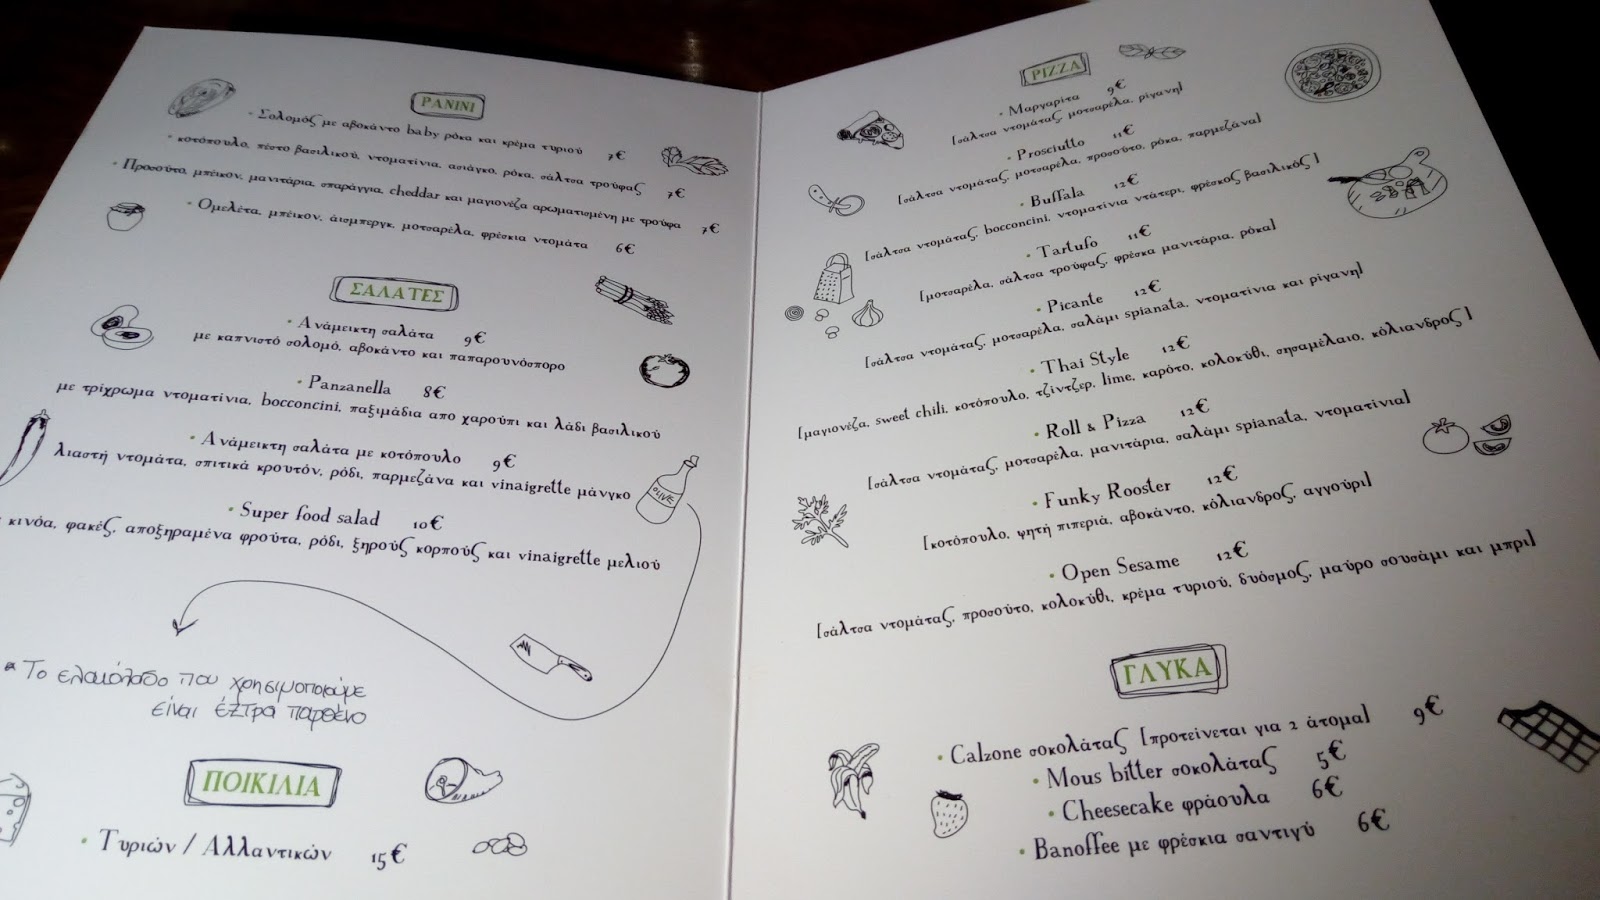 PANINI
• Σολομός με αβοκάντο baby ρόκα και κρέμα τυριού 7€
• κοτόπουλο, πέστο βασιλικού, ντοματίνια, ασιάγκο, ρόκα, σάλτσα τρούφας 7€
• Προσούτο, μπέικον, μανιτάρια, σπαράγγια, cheddar και μαγιονέζα αρωματισμένη με τρούφα 7€
• Ομελέτα, μπέικον, άισμπεργκ, μοτσαρέλα, φρέσκια ντομάτα 6€
ΣΑΛΑΤΕΣ
• Ανάμεικτη σαλάτα 9€
με καπνιστό σολομό, αβοκάντο και παπαρουνόσπορο
• Panzanella 8€
με τρίχρωμα ντοματίνια, bocconcini, παξιμάδια απο χαρούπι και λάδι βασιλικού
• Ανάμεικτη σαλάτα με κοτόπουλο 9€
λιαστή ντομάτα, σπιτικά κρουτόν, ρόδι, παρμεζάνα και vinaigrette μάνγκο
OLIVE
• Super food salad 10€
κινόα, φακές, αποξηραμένα φρούτα, ρόδι, ξηρούς κορπούς και vinaigrette μελιού
* Το ελαιόλαδο που χρησιμοποιούμε
είναι έξτρα παρθένο
ΠΟΙΚΙΛΙΑ
• Τυριών / Αλλαντικών 15€
PIZZA
• Μαργαρίτα 9€
[σάλτσα ντομάτας, μοτσαρέλα, ρίγανη]
• Prosciutto 11€
[σάλτσα ντομάτας, μοτσαρέλα, προσούτο, ρόκα, παρμεζάνα]
• Buffala 12€
[σάλτσα ντομάτας, bocconcini, ντοματίνια ντάτερι, φρέσκος βασιλικός]
• Tartufo 11€
[μοτσαρέλα, σάλτσα τρούφας, φρέσκα μανιτάρια, ρόκα]
• Picante 12€
[σάλτσα ντομάτας, μοτσαρέλα, σαλάμι spianata, ντοματίνια και ρίγανη]
• Thai Style 12€
[μαγιονέζα, sweet chili, κοτόπουλο, τζίντζερ, lime, καρότο, κολοκύθι, σησαμέλαιο, κόλιανδρος]
• Roll & Pizza 12€
[σάλτσα ντομάτας, μοτσαρέλα, μανιτάρια, σαλάμι spianata, ντοματίνια]
• Funky Rooster 12€
[κοτόπουλο, ψητή πιπεριά, αβοκάντο, κόλιανδρος, αγγούρι]
• Open Sesame 12€
[σάλτσα ντομάτας, προσούτο, κολοκύθι, κρέμα τυριού, δυόσμος, μαύρο σουσάμι και μπρι]
ΓΛΥΚΑ
• Calzone σοκολάτας [προτείνεται για 2 άτομα] 9€
• Mous bitter σοκολάτας 5€
• Cheesecake φράουλα 6€
• Banoffee με φρέσκια σαντιγύ 6€